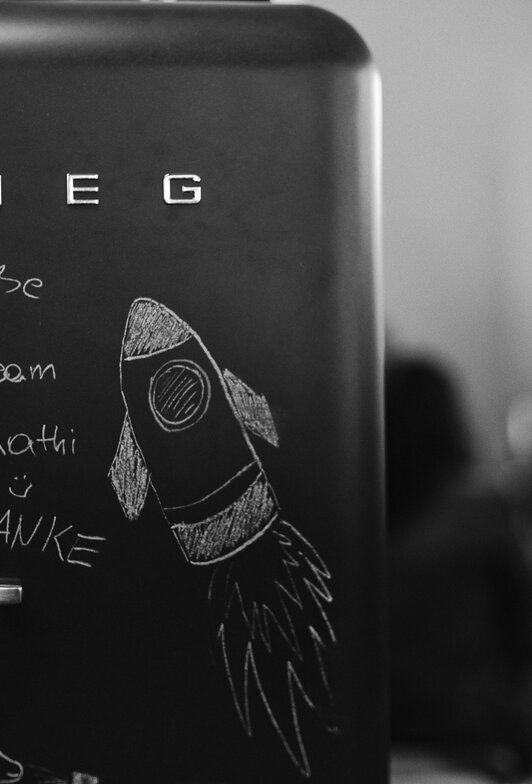 EG
be
eam
athi
ANKE